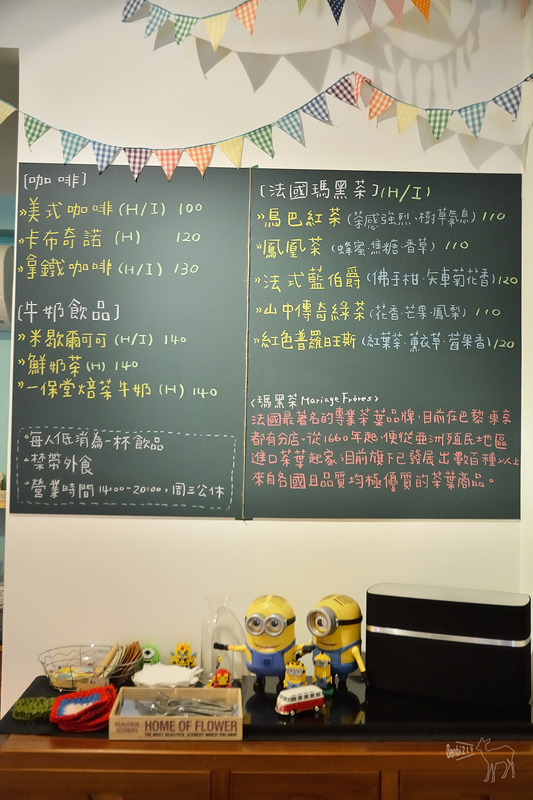 [咖啡]
»美式咖啡(H/I) 100
»卡布奇諾(H) 120
»拿鐵咖啡(H/I) 130
[牛奶飲品]
»米歇爾可可(H/I) 140
»鮮奶茶(H) 140
»一保堂焙茶牛奶(H) 140
*每人低消為一杯飲品
*禁帶外食
*營業時間14:00-20:00,周三公休
[法國瑪黑茶](H/I)
»鳥巴紅茶(茶感強烈、樹草氣息) 110
»鳳凰茶(蜂蜜·焦糖·香草) 110
»法式藍伯爵(佛手柑·矢車菊花香)120
»山中傳奇綠茶(花香·芒果·鳳梨) 110
»紅色普羅旺斯(紅葉茶·薰衣草·莓果香)120
<瑪黑茶 Mariage Frères>
法國最著名的專業茶葉品牌,目前在巴黎.東京
都有分店。從1660年起,便從亞洲殖民地區
進口茶葉起家,目前旗下已發展出數百種以上
來自各國且品質均極優質的茶葉商品。
BEAUTIFUL SCENERY
HOME OF FLOWER
THE MOST BEAUTIFUL SCENERY WHICH YOU WANT